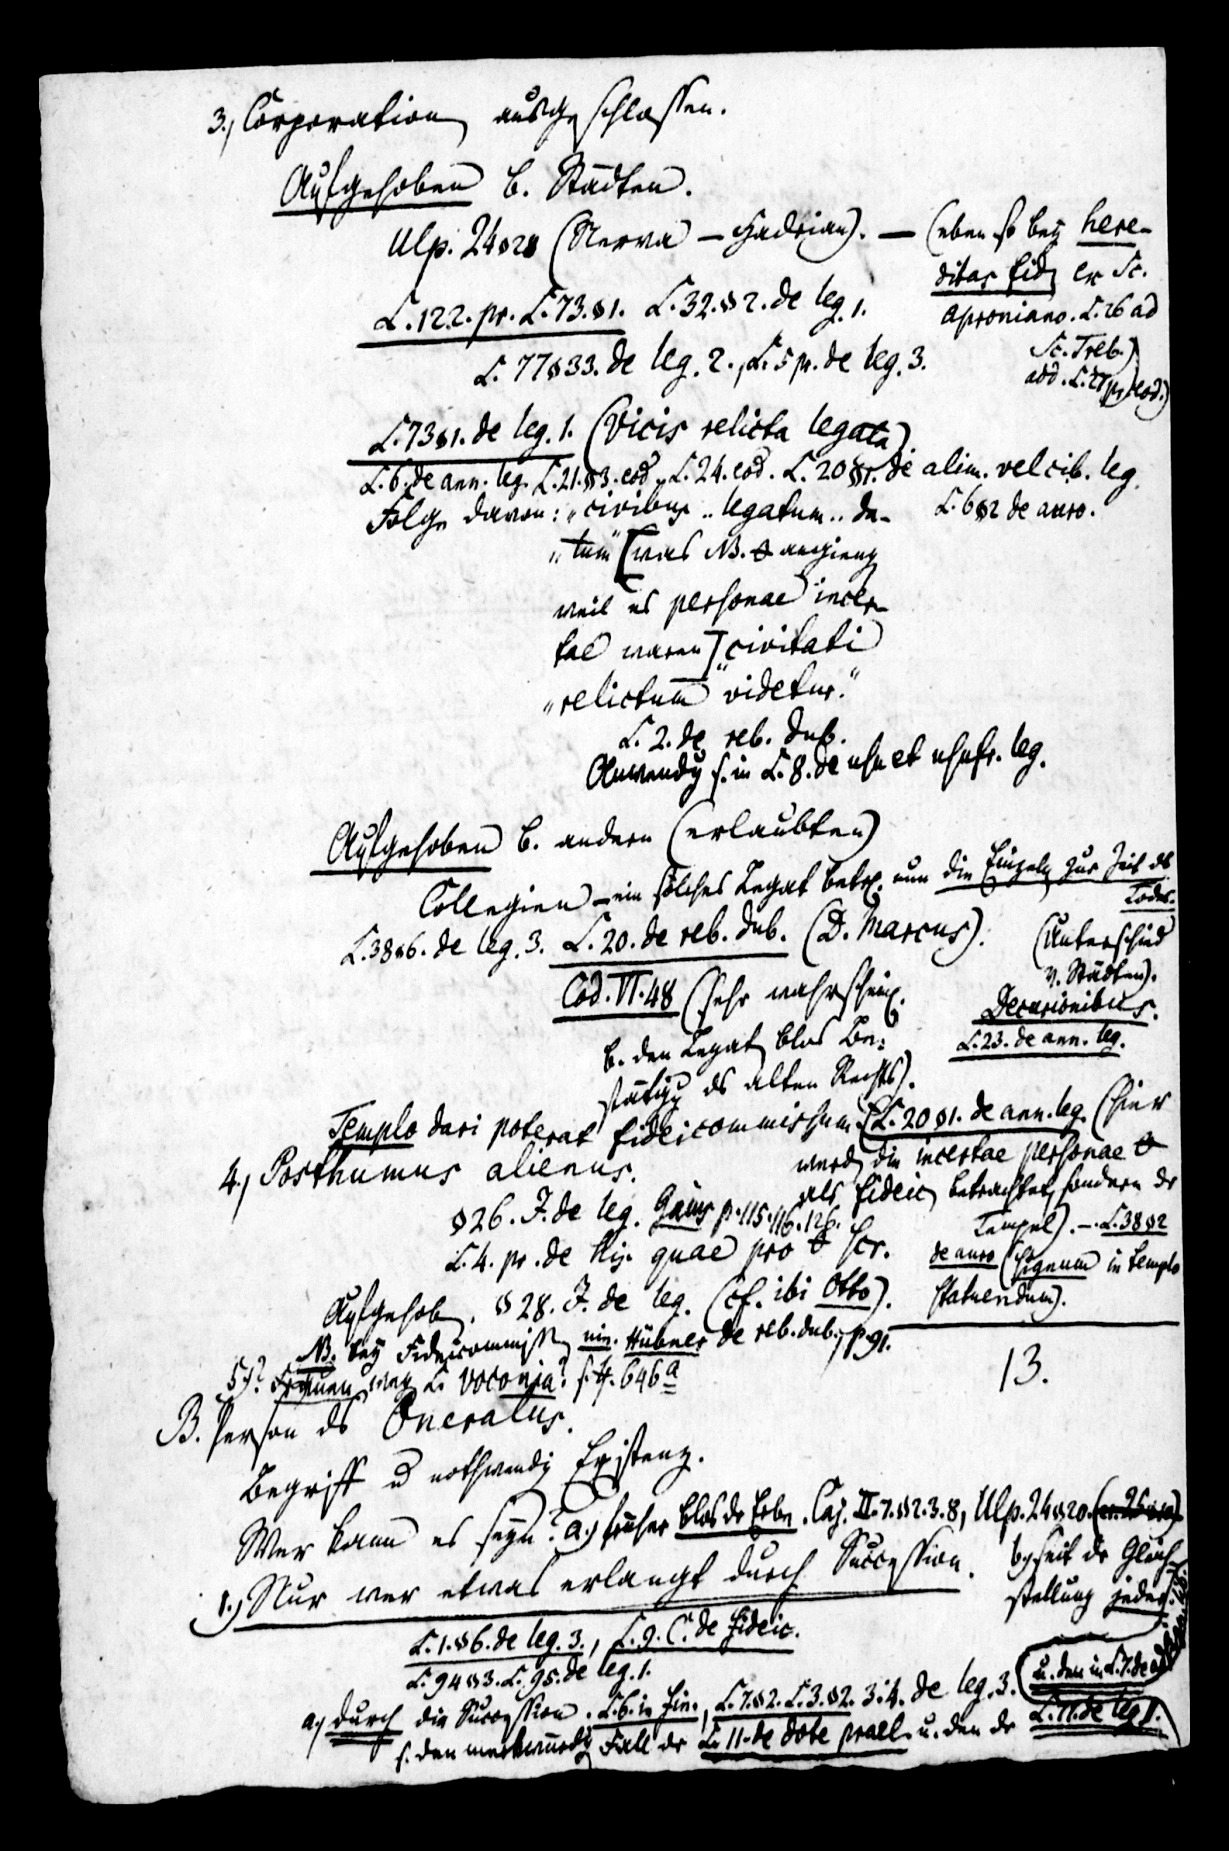 3., Corporation ausgeschlossen.
Aufgehoben b. Städten.
Ulp. 24 § 28 (Nerva – Hadrian). — (eben so bey here-
ditas fid. ex Sc.
Aproniano. L. 26 ad
Sc. Treb.)
add. L. 27 pr. eod.)
L. 122. pr. L. 73. § 1. L. 32. § 2. de leg. 1.
L. 77 § 33. de leg. 2., L. 5 pr. de leg. 3.
L. 73 § 1. de leg. 1. (Vicis relicta legata)
L. 6. de ann. leg. L. 21. § 3. eod. L. 24. eod. L. 20 § 1. de alim. vel cib. leg.
L. 6 § 2 de auro.
Folge davon: „civibus .. legatum .. da-
„tum“ [was NB. angieng
weil es personae incer-
tae waren] civitati
„relictum videtur.“
L. 2. de reb. dub.
Anwendg s. in L. 8. de usu et usufr. leg.
Aufgehoben b. andern (erlaubten)
Collegien – ein solches Legat betr. nun die Einzeln zur Zeit ds
Todes.
(Unterschied
v. Städten).
L. 38 § 6. de leg. 3. L. 20. de reb. dub. (D. Marcus).
Cod. VI. 48 (sehr wahrscheinl.
b. den Legat blos Be-
stätigg ds alten Rechts).
Decurionibus.
L. 23. de ann. leg.
Templo dari poterat fideicommissum. L. 20 § 1. de ann. leg. (hier
werd. die incertae personae
als fideic. betrachtet, sondern dr
Tempel). –. L. 38 § 2
de auro (signum in templo
statuendum).
4., Posthumus alienus.
§ 26. J. de leg. Gaius p. 115. 116. 126.
L. 4. pr. de his quae pro scr.
Aufgehob. § 28. J. de leg. (cf. ibi Otto).
NB. bey Fideicommiss. Hübner de reb. dub. p. 91.
5.)? Frauen weg. L. Voconia? s. 646 a
13.
B. Person ds Oneratus.
Begriff u nothwendig Existenz.
Wer kann es seyn? a.) früher blos dr Erbe. Caj. II. 7. § 2. 3. 8, Ulp. 24 § 20.
b., seit dr Gleich-
stellung jeder.
1., Nur wer etwas erlangt durch Succession.
L. 1. § 6. de leg. 3., L. 9. C. de fideic.
L. 94 § 3. L. 95. de leg. 1.
a., durch die Succession. L. 6. in fin., L. 7. § 2. L. 3. § 2. 3. 4. de leg. 3. (u. den in L. 7. de
s. den merkwürdg Fall dr L. 11. de dote prael. u. den dr L. 11. de leg. 1.